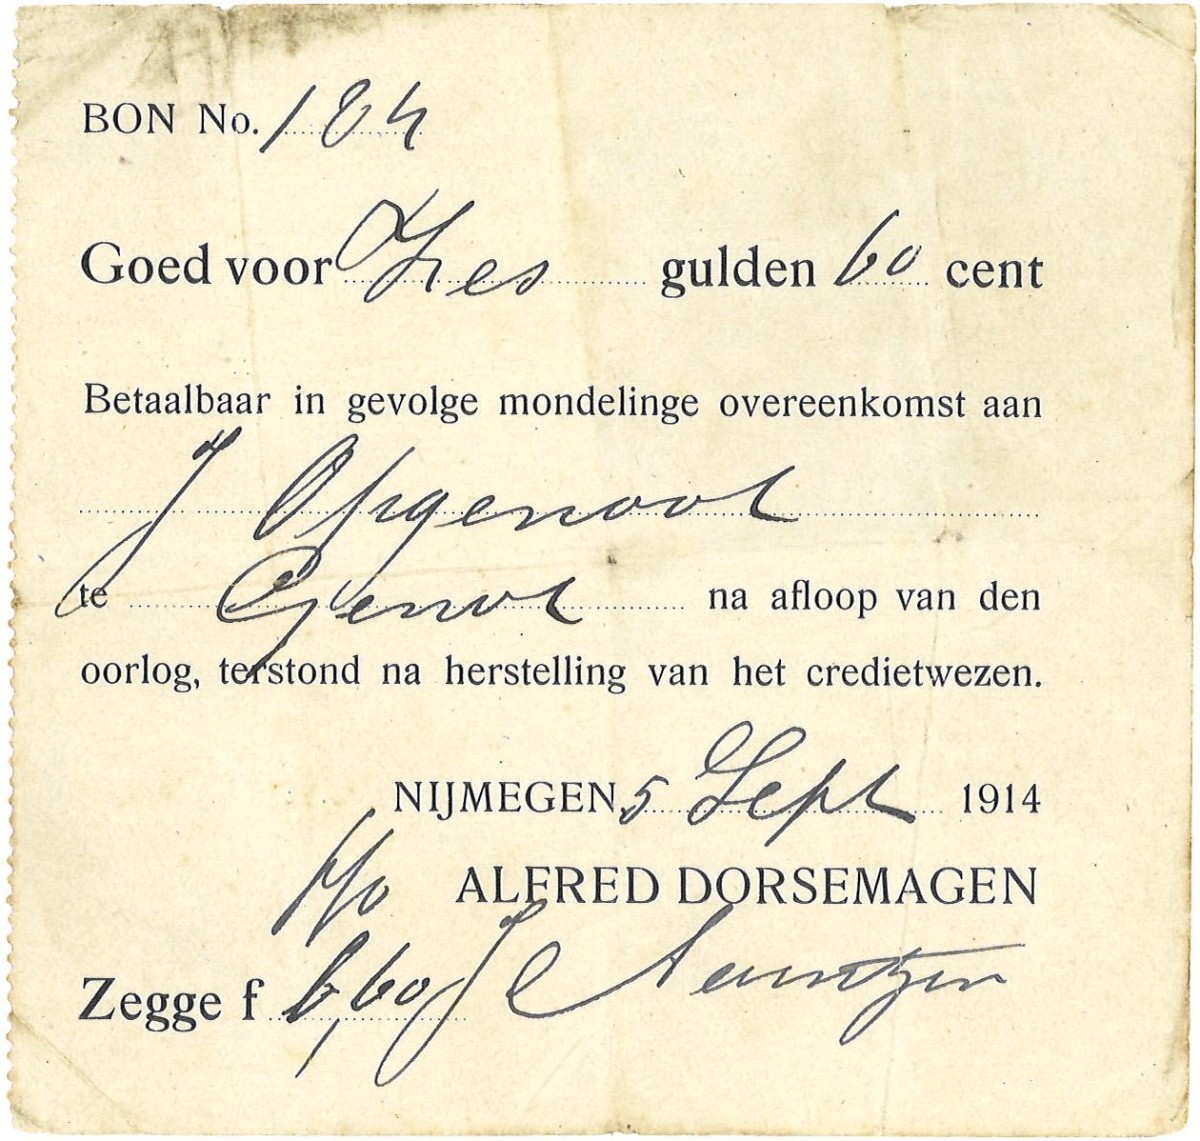 BON No. 184
Goed voor Zes gulden 60 cent
Betaalbaar in gevolge mondelinge overeenkomst aan
J Opgenoot
te na afloop van den
oorlog, terstond na herstelling van het credietwezen.
NIJMEGEN, 5 Sept 1914
ALFRED DORSEMAGEN
Zegge f 6,60 J